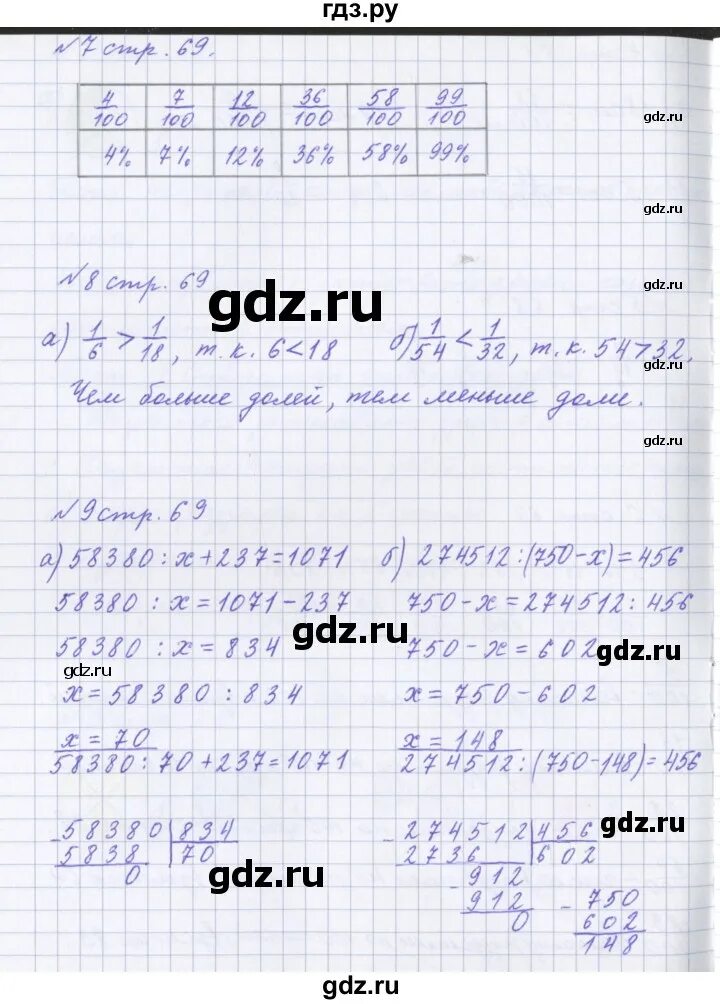 гдз.ру
№7 стр. 69.
4/100 7/100 12/100 36/100 58/100 99/100
4% 7% 12% 36% 58% 99%
gdz.ru
gdz.ru
№8 стр. 69
gdz.ru
gdz.ru
а) 1/6 > 1/18, т.к. 6<18 б) 1/54 < 1/32, т.к. 54>32.
gdz.ru
Чем больше долей, тем меньше доли.
gdz.ru
№9 стр. 69
а) 58380 : х + 237 = 1071 б) 274512 : (750-х) = 456
58380 : х = 1071 - 237 750 - х = 274512 : 456
gdz.ru
58380 : х = 834 750 - х = 602
gdz.ru
gdz.ru
х = 58380 : 834 х = 750 - 602
х = 70 х = 148
58380 : 70 + 237 = 1071 274512 : (750-148) = 456
gdz.ru
- 58380 834 - 274512 456
5838 70 2736 602
gdz.ru
0 - 912
912 - 750
0 602
148
gdz.ru